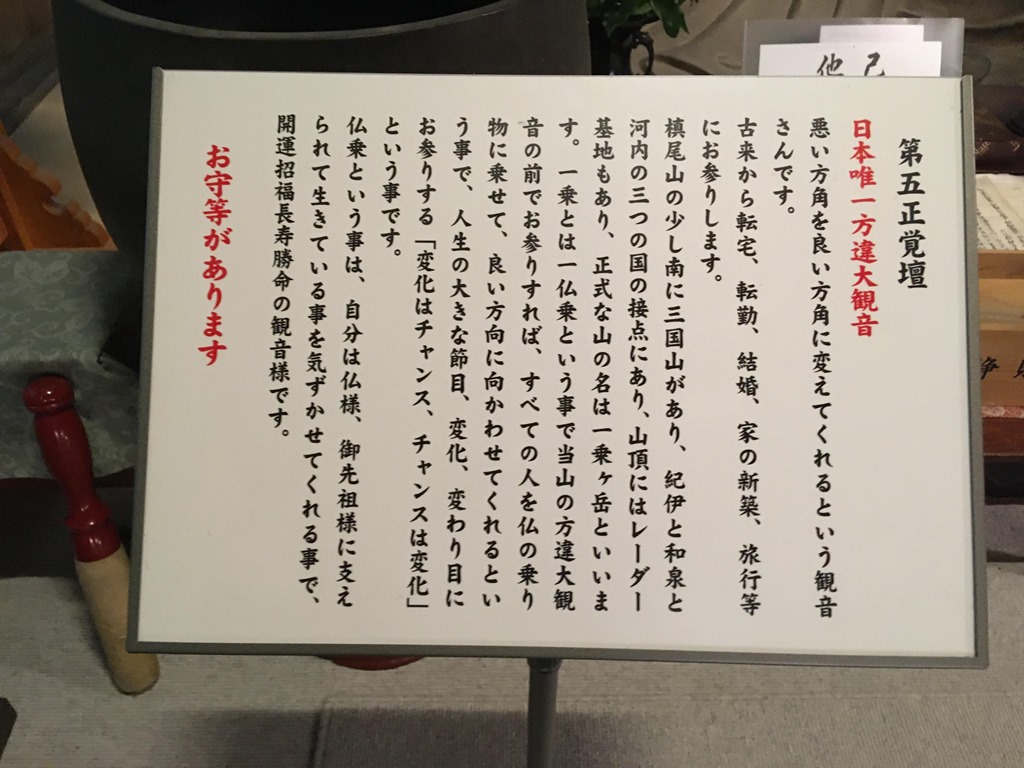 第五正覚壇
日本唯一方違大観音
悪い方角を良い方角に変えてくれるという観音
さんです。
古来から転宅、転勤、結婚、家の新築、旅行等
にお参りします。
槙尾山の少し南に三国山があり、紀伊と和泉と
河内の三つの国の接点にあり、山頂にはレーダー
基地もあり、正式な山の名は一乗ヶ岳といいま
す。一乗とは一仏乗という事で当山の方違大観
音の前でお参りすれば、すべての人を仏の乗り
物に乗せて、良い方向に向かわせてくれるとい
う事で、人生の大きな節目、変化、変わり目に
お参りする「変化はチャンス、チャンスは変化」
という事です。
仏乗という事は、自分は仏様、御先祖様に支え
られて生きている事を気ずかせてくれる事で、
開運招福長寿勝命の観音様です。
お守等があります